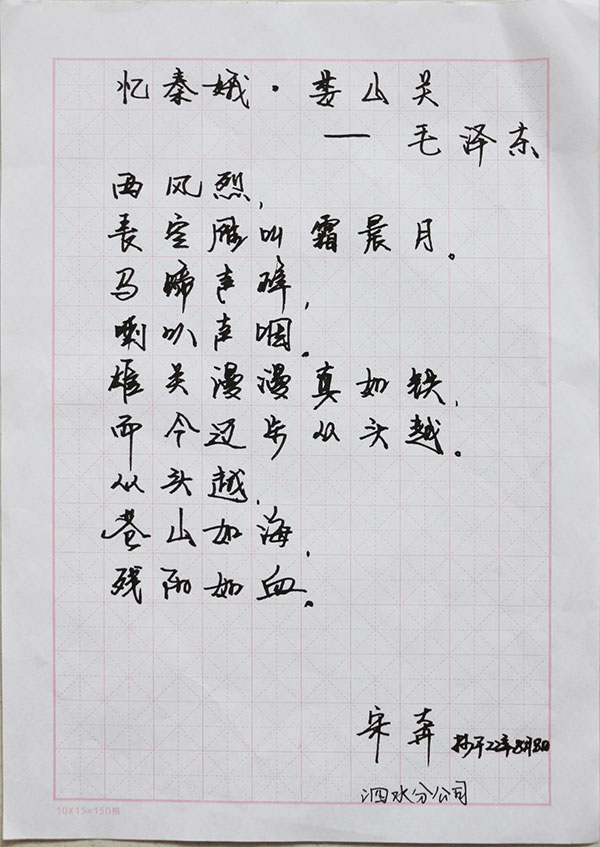 忆秦娥·娄山关
——毛泽东
西风烈,
长空雁叫霜晨月。
马蹄声碎,
喇叭声咽。
雄关漫漫真如铁,
而今迈步从头越。
从头越,
苍山如海,
残阳如血。
宋奔 抄于22年8月8日
泗水分公司
10X15=150格